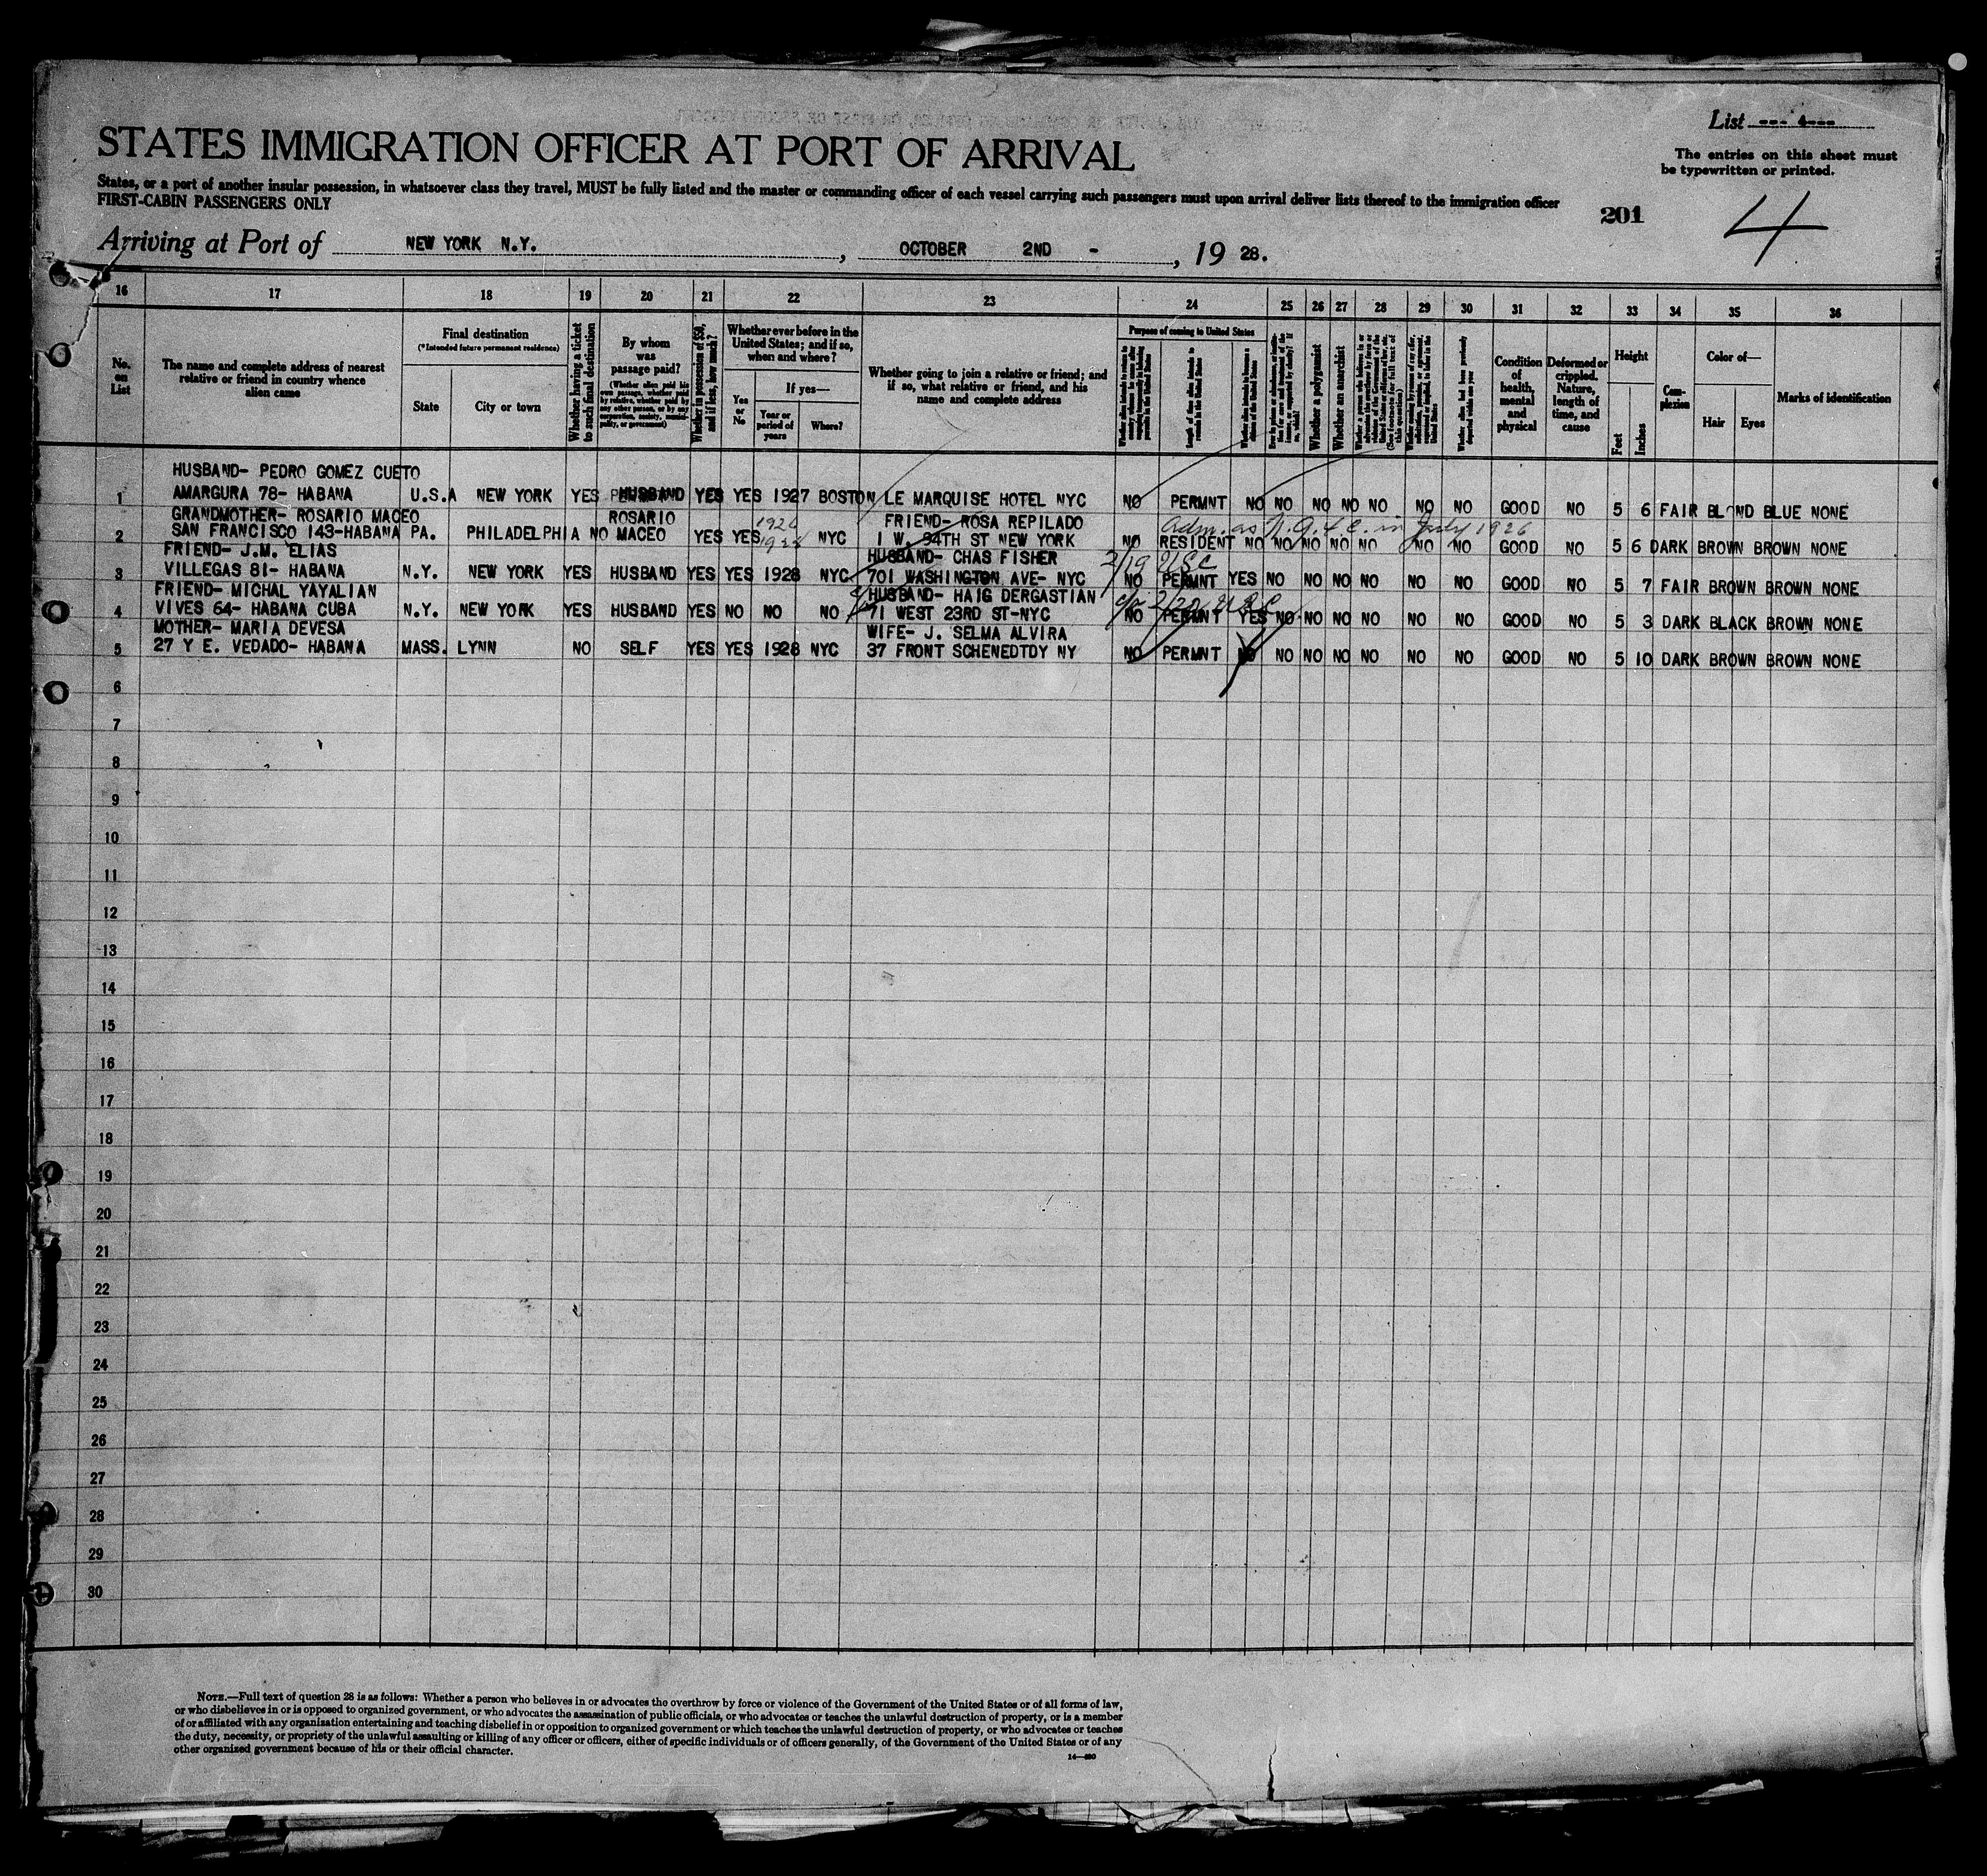 List --- 4---
STATES IMMIGRATION OFFICER AT PORT OF ARRIVAL
The entries on this sheet must
be typewritten or printed.
States, or a port of another insular possession, in whatsoever class they travel, MUST be fully listed and the master or commanding officer of each vessel carrying such passengers must upon arrival deliver lists thereof to the immigration officer
FIRST-CABIN PASSENGERS ONLY
201
4
Arriving at Port of NEW YORK N.Y. , OCTOBER 2ND - , 19 28.
16 17 18 19 20 21 22 23 24 25 26 27 28 29 30 31 32 33 34 35 36
No. on List
The name and complete address of nearest relative or friend in country whence alien came
Final destination
(*Intended future permanent residence)
State
City or town
Whether having a ticket to such final destination
By whom was passage paid?
(Whether alien paid his own passage, whether paid by relative, whether paid by any other person, or by any corporation, society, municipality, or government)
Whether in possession of $50, and if less, how much?
Whether ever before in the United States; and if so, when and where?
Yes or No
If yes—
Year or period of years
Where?
Whether going to join a relative or friend; and if so, what relative or friend, and his name and complete address
Purpose of coming to United States
Whether a polygamist
Whether an anarchist
Condition of health, mental and physical
Deformed or crippled. Nature, length of time, and cause
Height
Feet
Inches
Complexion
Color of—
Hair
Eyes
Marks of identification
HUSBAND- PEDRO GOMEZ CUETO
1 AMARGURA 78- HABANA U.S.A NEW YORK YES HUSBAND YES YES 1927 BOSTON LE MARQUISE HOTEL NYC NO PERMNT NO NO NO NO NO NO NO GOOD NO 5 6 FAIR BLOND BLUE NONE
GRANDMOTHER- ROSARIO MACEO ROSARIO FRIEND- ROSA REPILADO
2 SAN FRANCISCO 143-HABANA PA. PHILADELPHIA NO MACEO YES YES NYC 1 W. 94TH ST NEW YORK NO RESIDENT NO NO NO NO NO NO NO GOOD NO 5 6 DARK BROWN BROWN NONE
Adm. as in July 1926
FRIEND- J.M. ELIAS HUSBAND- CHAS FISHER
3 VILLEGAS 81- HABANA N.Y. NEW YORK YES HUSBAND YES YES 1928 NYC 701 WASHINGTON AVE- NYC NO PERMNT YES NO NO NO NO NO NO GOOD NO 5 7 FAIR BROWN BROWN NONE
FRIEND- MICHAL YAYALIAN HUSBAND- HAIG DERGASTIAN
4 VIVES 64- HABANA CUBA N.Y. NEW YORK YES HUSBAND YES NO NO NO 71 WEST 23RD ST-NYC NO PERMNT YES NO NO NO NO NO NO GOOD NO 5 3 DARK BLACK BROWN NONE
MOTHER- MARIA DEVESA WIFE- J. SELMA ALVIRA
5 27 Y E. VEDADO- HABANA MASS. LYNN NO SELF YES YES 1928 NYC 37 FRONT SCHENEDTDY NY NO PERMNT NO NO NO NO NO NO NO GOOD NO 5 10 DARK BROWN BROWN NONE
6
7
8
9
10
11
12
13
14
15
16
17
18
19
20
21
22
23
24
25
26
27
28
29
30
NOTE.—Full text of question 28 is as follows: Whether a person who believes in or advocates the overthrow by force or violence of the Government of the United States or of all forms of law,
or who disbelieves in or is opposed to organized government, or who advocates the assassination of public officials, or who advocates or teaches the unlawful destruction of property, or is a member
of or affiliated with any organization entertaining and teaching disbelief in or opposition to organized government or which teaches the unlawful destruction of property, or who advocates or teaches
the duty, necessity, or propriety of the unlawful assaulting or killing of any officer or officers, either of specific individuals or of officers generally, of the Government of the United States or of any
other organized government because of his or their official character.